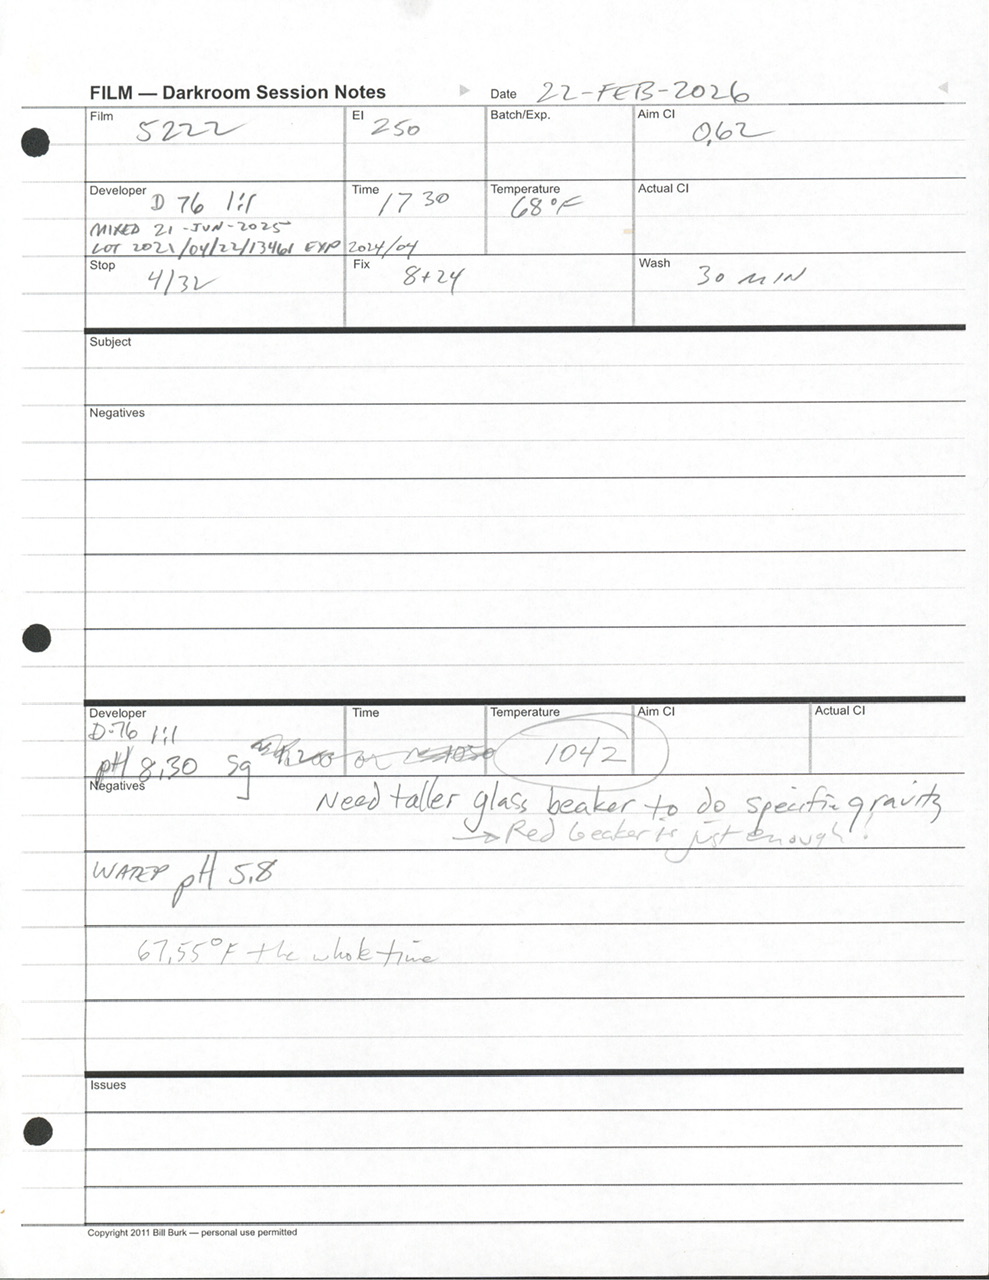 FILM — Darkroom Session Notes Date 22-FEB-2026
Film EI Batch/Exp. Aim CI
5222 250 0.62
Developer Time Temperature Actual CI
D 76 1:1 17 30 68°F
MIXED 21-JUN-2025
LOT 2021/04/22/13461 EXP 2024/04
Stop Fix Wash
4/32 8+24 30 MIN
Subject
Negatives
Developer Time Temperature Aim CI Actual CI
D-76 1:1
pH 8.30 sg 1042
Negatives
Need taller glass beaker to do specific gravity
→ Red beaker is just enough!
WATER pH 5.8
67.55°F the whole time
Issues
Copyright 2011 Bill Burk — personal use permitted